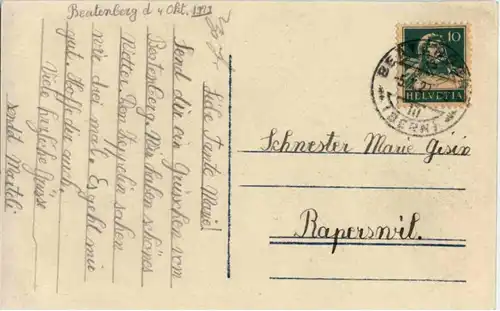 Beatenberg d 4 Okt.
Liebe Tante Marie!
Send dir ein Grüsschen vom
Beatenberg. Wir haben schönes
Wetter. Den Zeppelin sahen
wir drei mal. Es geht mir
gut. Hoffe dir auch.
Viele herzliche Grüsse
sendet
10
HELVETIA
BEATENBERG
(BERN)
III
Schwester Marie Gisin
Raperswil.